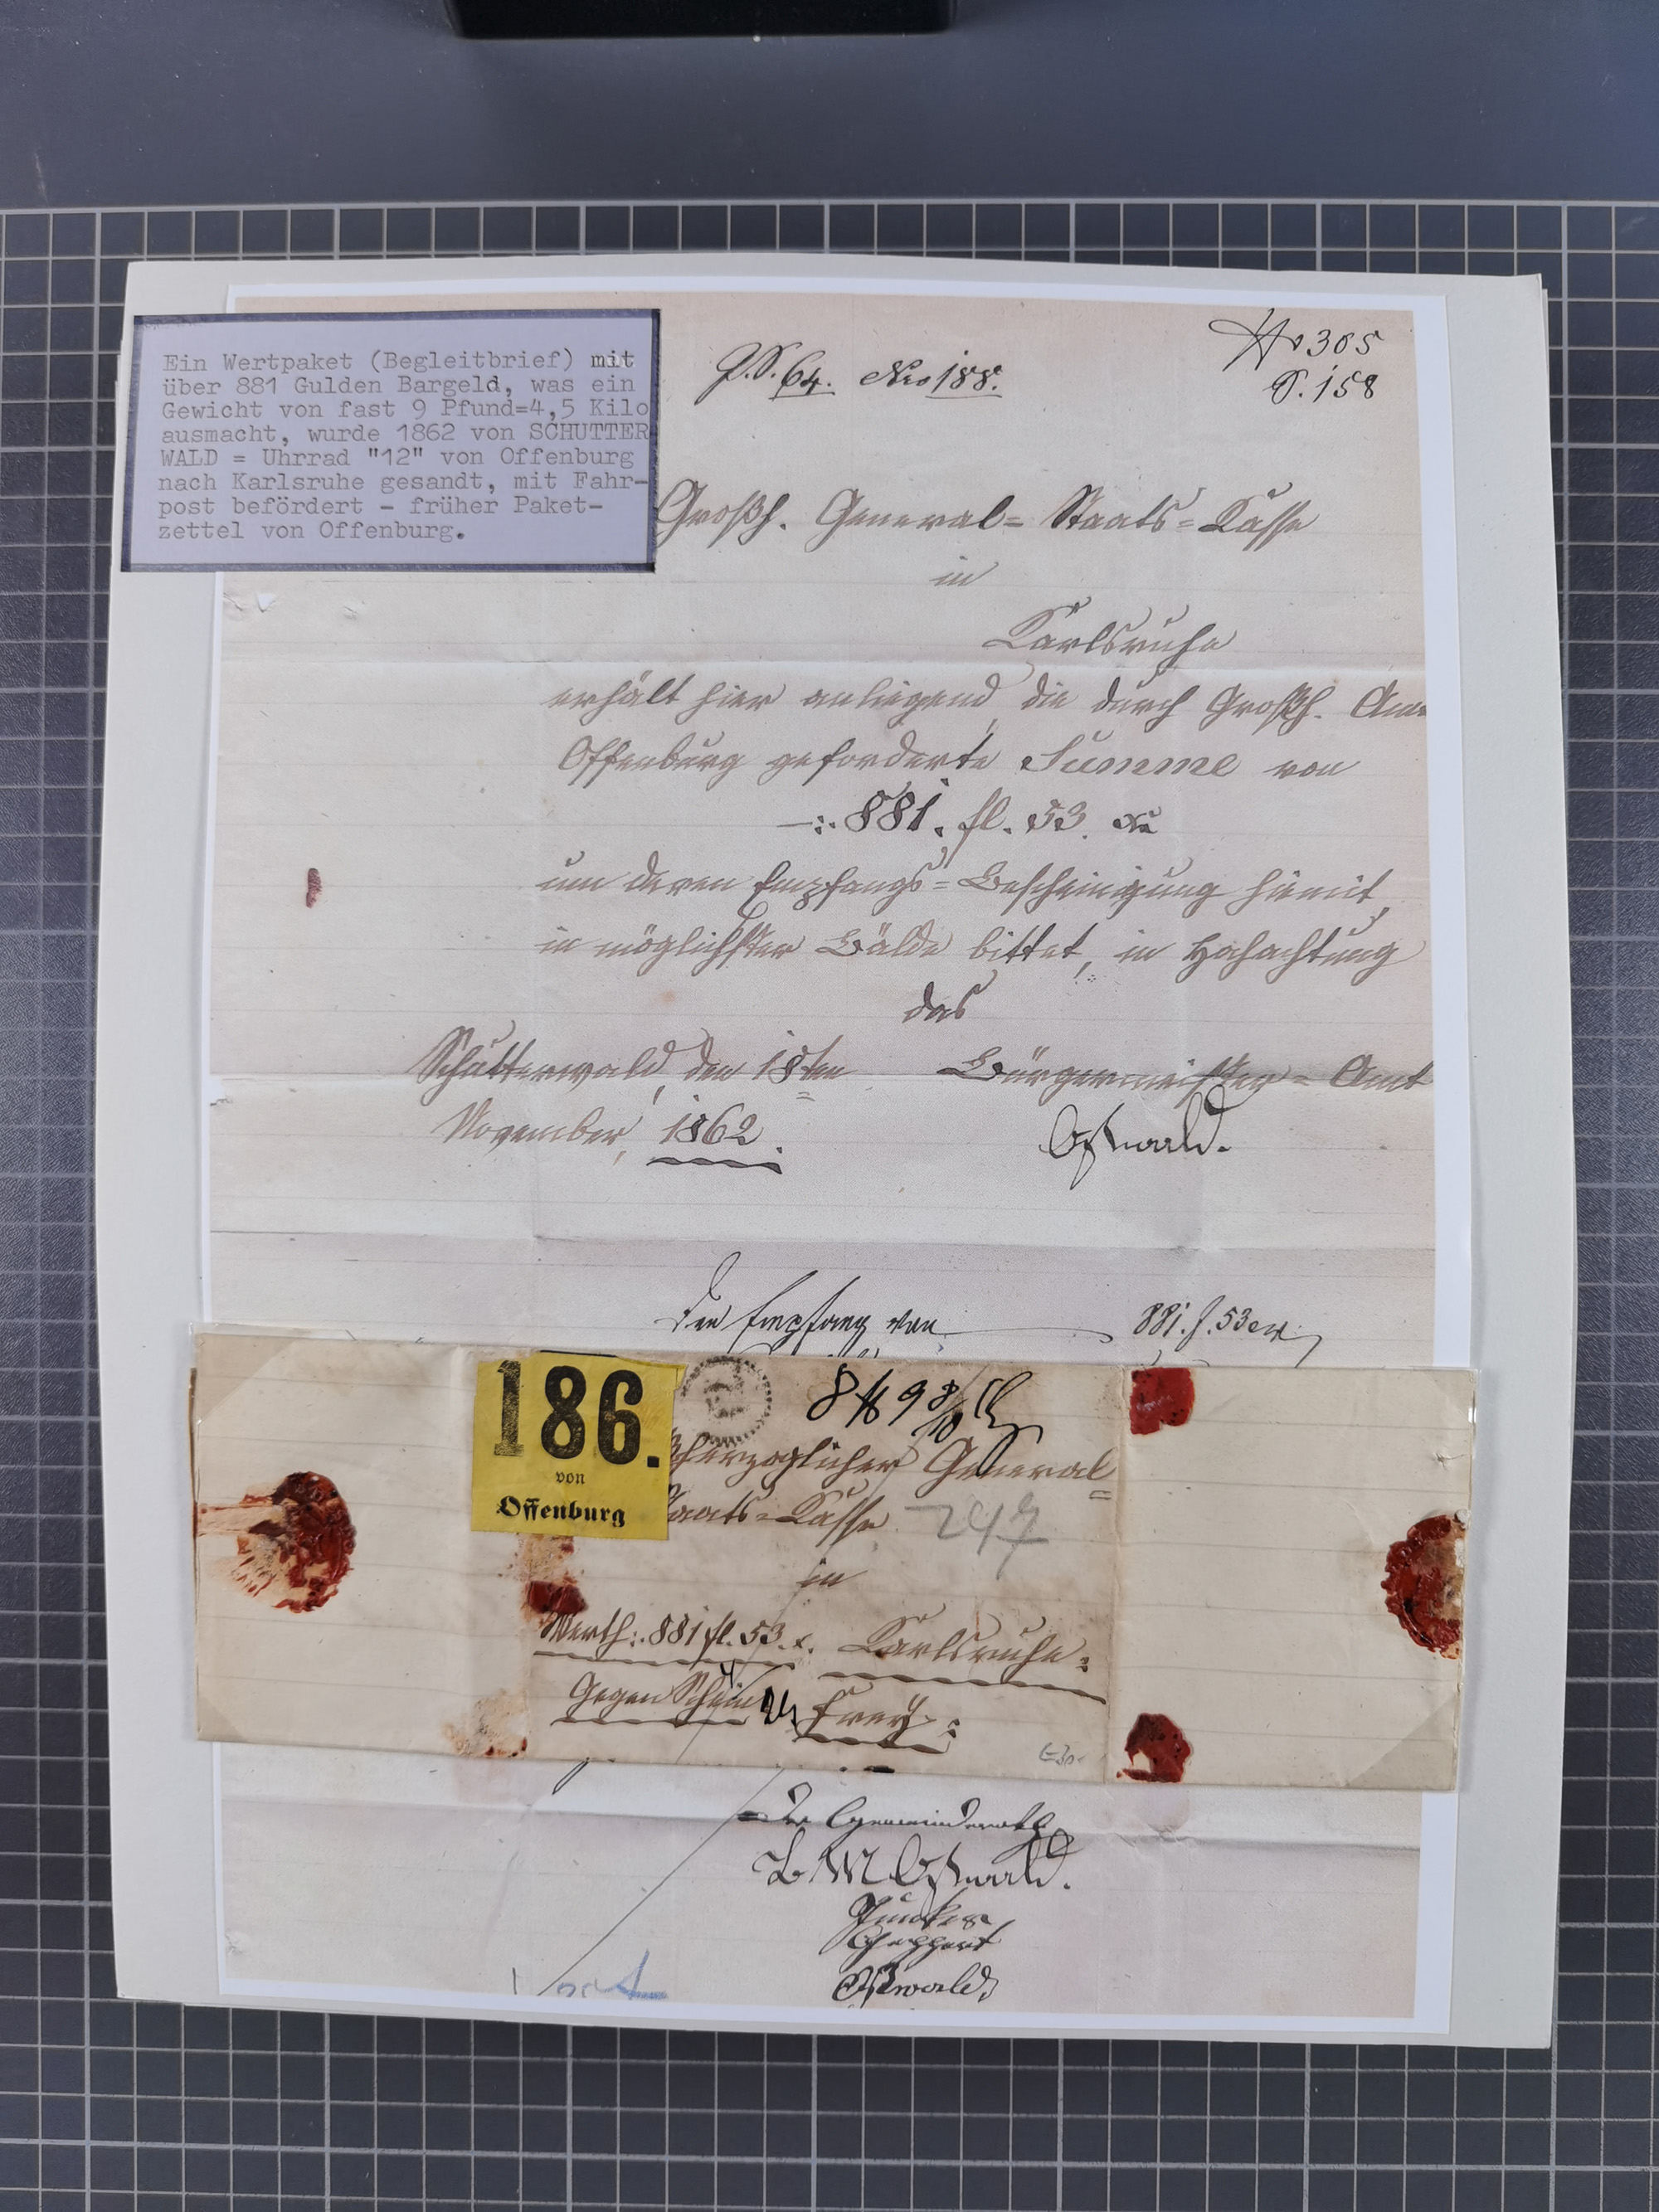 Ein Wertpaket (Begleitbrief) mit
über 881 Gulden Bargeld, was ein
Gewicht von fast 9 Pfund=4,5 Kilo
ausmacht, wurde 1862 von SCHUTTER
WALD = Uhrrad "12" von Offenburg
nach Karlsruhe gesandt, mit Fahr-
post befördert - früher Paket-
zettel von Offenburg.
No 305
S. 158
64. Nro 188.
Großh. General= Staats=Kasse
in
Karlsruhe
erhält hier anliegend, die durch Großh.
Offenburg geforderte Summe von
881. fl. 53. xr
um deren Empfangs=Bescheinigung hiemit,
in möglichster Bälde bittet, in Hochachtung
das
Schutterwald, den 18ten Bürgermeister=Amt
November, 1862. Oßwald.
Den Empfang von 881. f. 53 xr
186.
von
Offenburg
8 98/10
herzoglicher General=
taats=Kasse 247
in
Werth: 881 fl. 53. x. Karlsruhe:
Gegen Schein Frey:
Der Gemeinderath
B M Oßwald.
Junker
Seppert
Oßwald